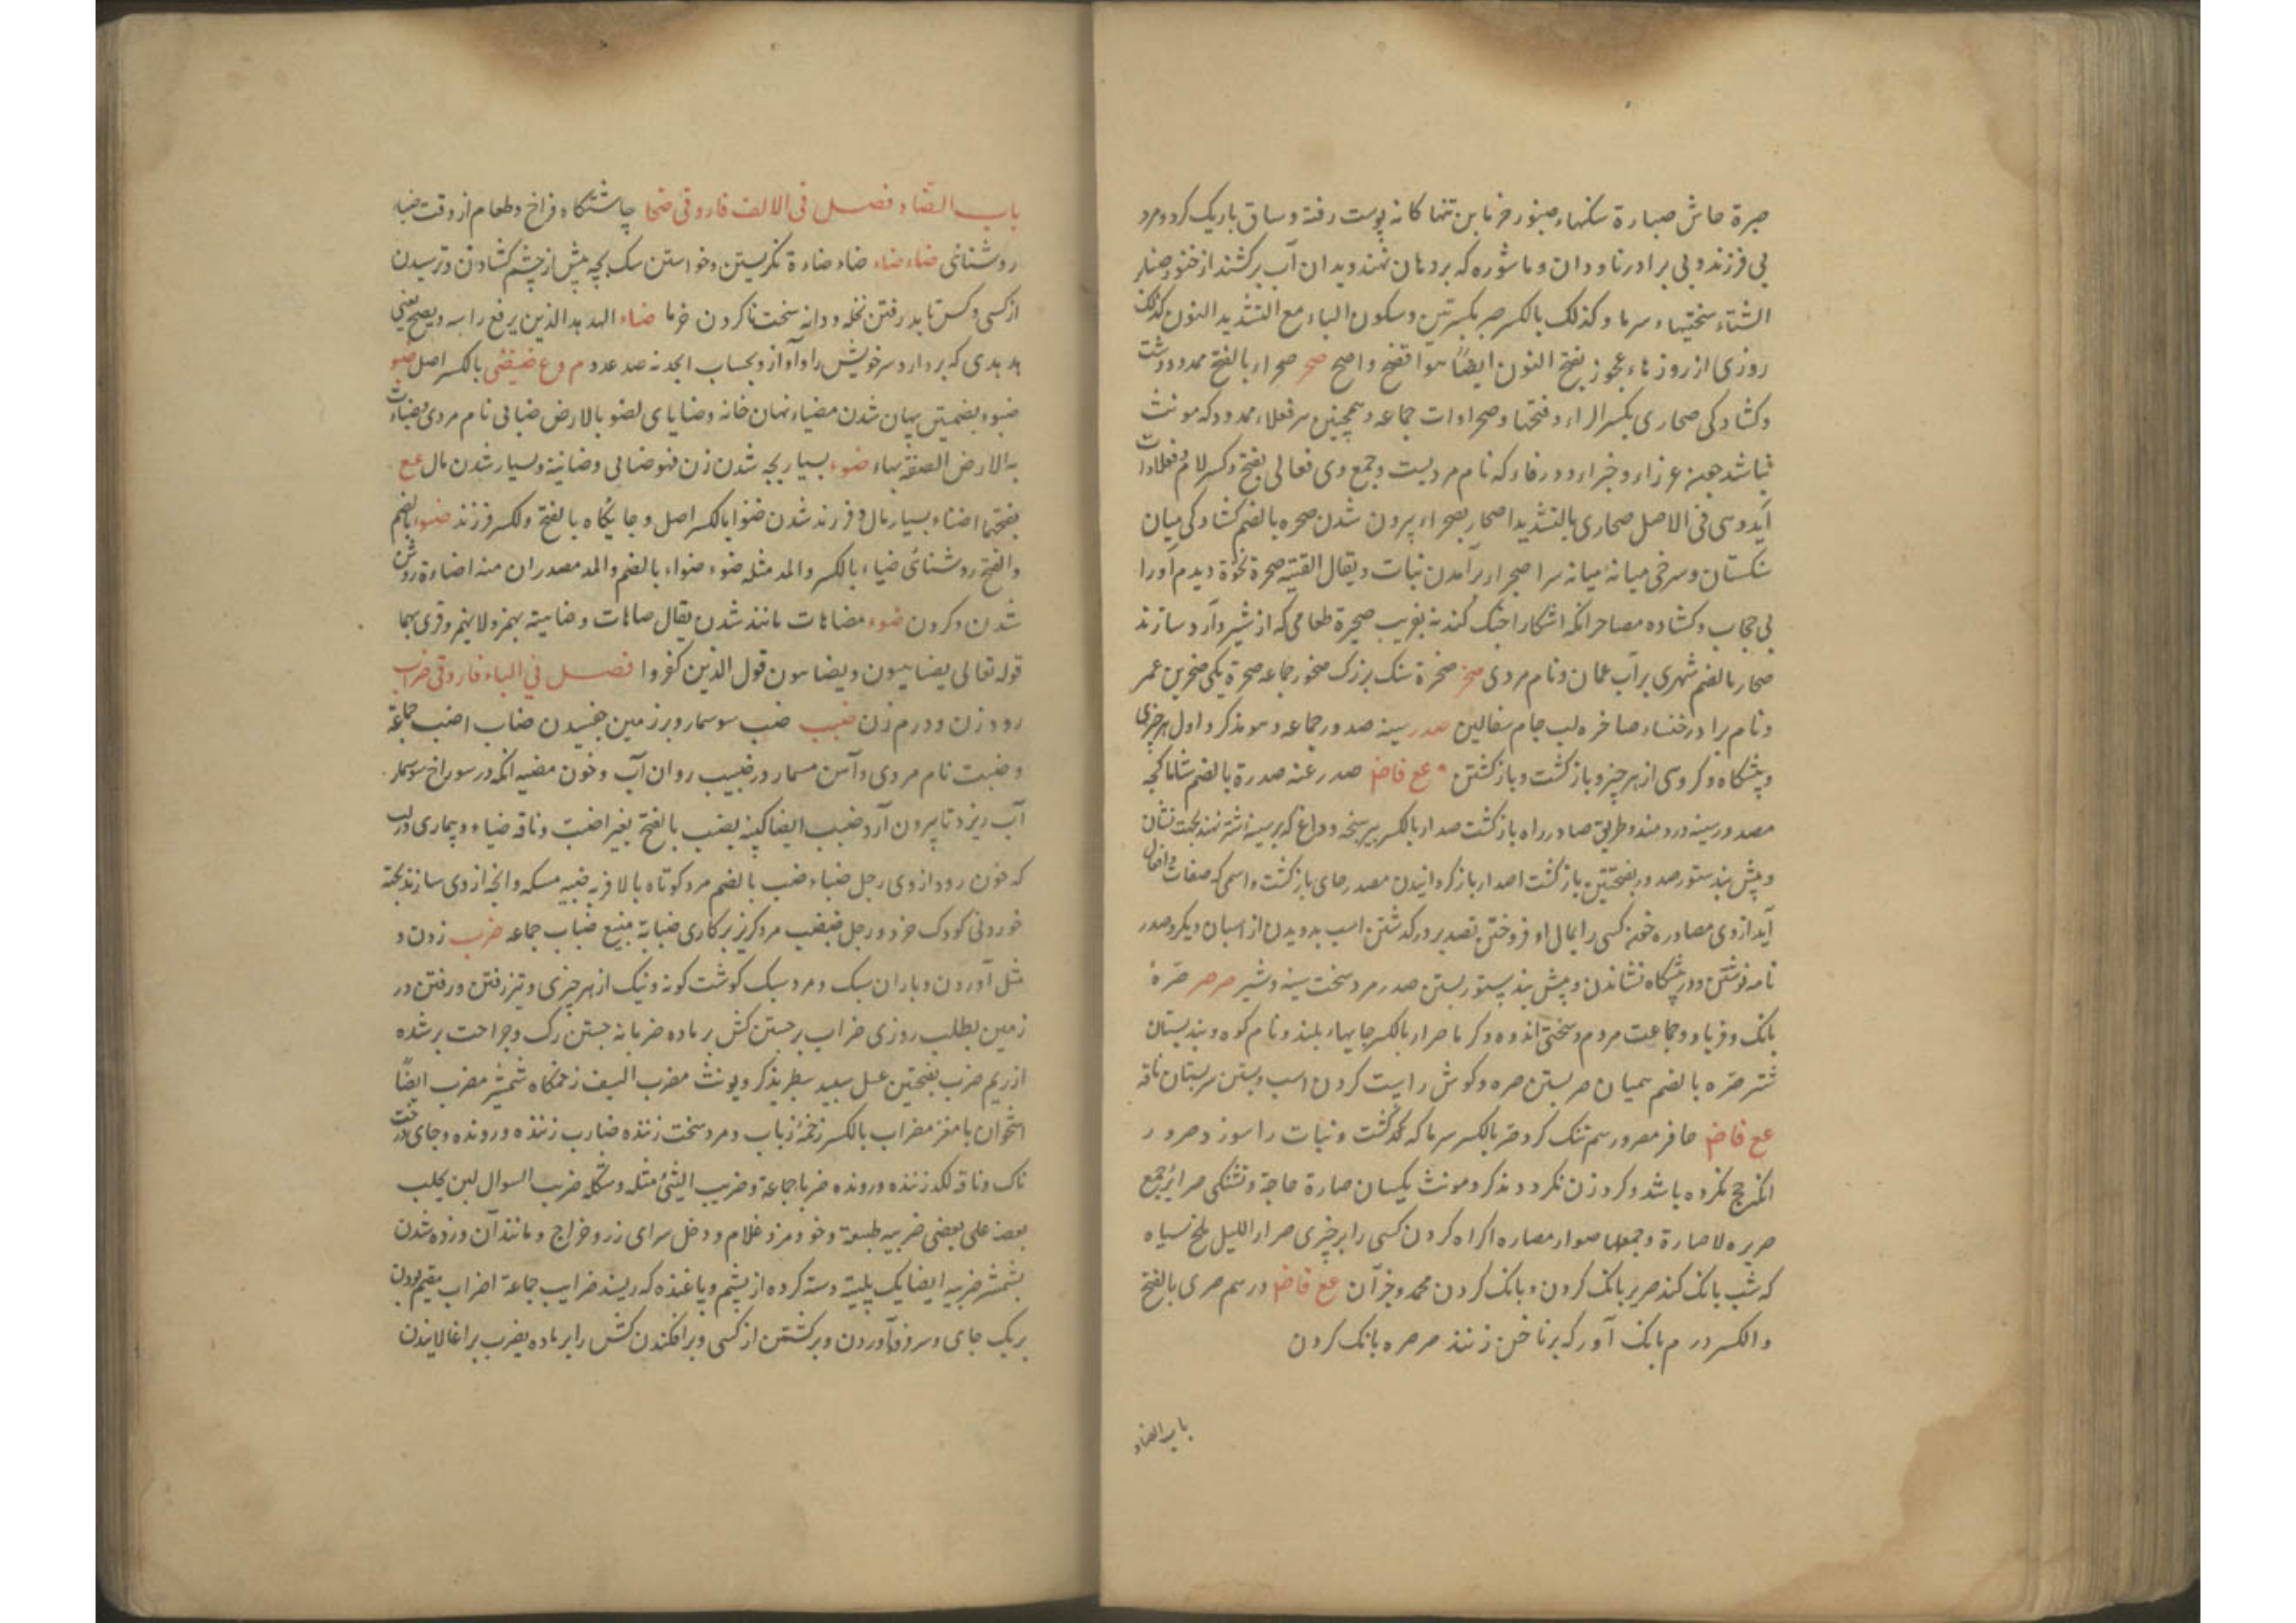 صبرة حاش صبارة سنکهاء صنبور خرمابن تنها کانه پوست رفتة وساق باریک کرد ومرد
بی فرزند و بی برادر ناودان و ماشوره که بردهان نهند وبدان آب برکشند از خنور صنابر
الشتاء سختیهاء سرما وکذلک بالکسر صبر بکسرتین وسکون الباء مع التشدید النون کذلک
روزی از روزهاء عجوز بفتح النون ایضاً هو افصح واصح صحر صحراء بالفتح ممدود دشت
وکشادکی صحاری بکسر الراء وفتحها وصحراوات جماعه وهمچنین هر فعلاء ممدود که مونث
نباشد چون عزراء وخبراء وورقاء که نام مردیست وجمع وی فعالی بفتح وکسر لام وفعلاوات
آید وهی فی الاصل صحاری بالتشدید اصحار بصحراء بیرون شدن صحره بالضم کشادکی میان
سنکستان وسرخی میانه میانه سر اصحرار برآمدن نبات ویقال لقیته صحرة بحرة دیدم اورا
بی حجاب وکشاده مصاحر انکه اشکارا جنک کند نه بفریب صحیرة طعامی که از شیر وآرد سازند
صحار بالضم شهری بر آب عمان ونام مردی صخر صخرة سنک بزرک صخور جماعه صخرة یکی صخر بن عمر
ونام برادر خنساء صاخره لب جام سفالین صدر سینه صدور جماعه وهو مذکر واول هر چیزی
وپیشکاه وکروهی از هر چیز وباز کشت وباز کشتن عع فاض صدر عنه صدرة بالضم شاماکچه
مصدور سینه دردمند وطریق صادر راه باز کشت صدار بالکسر پیرهنچه وداغ که بر سینه شتر نهند بجهت نشان
وپیش بند ستور صدور بفتحتین باز کشت اصدار باز کردانیدن مصدر جای باز کشت واسمی که صفات وافعال
آید از وی مصادره خون کسی را بمال او فروختن تصدیر در کذشتن اسب بدویدن از اسبان دیکر وصدر
نامه نوشتن ودر پیشکاه نشاندن وپیش بند بستور بستن صدر مرد سخت سینه وشیر صرصر صرّة
بانک وفریاد وجماعت مردم وسختی اندوه وکرما صرار بالکسر جایهاء بلند ونام کوه وبند پستان
شتر صره بالضم همیان صر بستن صره وکوش راست کردن اسب وبستن سر پستان ناقه
عع فاض حافر مصرور سم تنک کرد صر بالکسر سرما که کشت ونبات را سوزد صرور
انکه حج نکرده باشد وکرد زن نکردد مذکر ومونث یکسان صارة حاجة وتشنکی صرائر جمع
صریره لا صارة وجمعها صوار مصاره اکراه کردن کسی را بر چیزی صرار اللیل ملخ سیاه
که شب بانک کند صریر بانک کردن وبانک کردن محمد وجز آن عع فاض درهم صری بالفتح
والکسر درم بانک آور که بر ناخن زنند صرصره بانک کردن
باب الضاد
باب الضاد فصل فی الالف فاروقی ضحا چاشتکاه فراخ وطعام ازوقت ضیاء
روشنائی ضاء ضاء ضاء ضاءة نکریستن وخواستن سک بچه پیش از چشم کشادن وترسیدن
از کسی وکس نابدر رفتن نخله ودانه سخت ناکردن خرما ضاء الهدهد الذین یرفع راسه ویصیح یعنی
هدهدی که بردارد سر خویش را وآواز وبحساب ابجد نه صد عدد م وع ضئضئی بالکسر اصل ضبو
ضبوء بضمتین پنهان شدن مضباء نهان خانه وضابای لضو بالارض ضبائی نام مردی وضبات
به الارض الصقه بهاء ضنوء بسیار بچه شدن زن فهو ضانی وضانیة وبسیار شدن مال عع
بفتحها اضناء بسیار مال وفرزند شدن ضنوا بالکسر اصل وجایکاه بالفتح والکسر فرزند ضوء بالضم
والفتح روشنائی ضیاء بالکسر والمد مثله ضوء ضواء بالضم والمد مصدران منه اضاءة روشن
شدن وکردن ضوء مضاهات مانند شدن یقال ضاهات وضاهیته یهمز ولا یهمز وقری بهما
قوله تعالی یضاهیون ویضاهون قول الذین کفروا فصل فی الباء فاروقی ضراب
رود زن ودرم زن ضبب ضب سوسمار وبر زمین چفسیدن ضباب اضب جماعة
وضبت نام مردی وآهن مسمار در ضبیب روان آب وخون مضبه انکه در سوراخ سوسمار
آب ریزد تا بیرون آرد ضبب ایضا کینه یضب بالفتح بغیر اضبت وناقه ضباء وبیماری در لب
که خون رود از وی رجل ضباء ضب بالضم مرد کوتاه بالا فربه ضبیبه مسکه وانچه از وی سازند بجهة
خوردنی کودک خرد ورجل ضبضب مرد کریز بر کاری ضبابة میغ ضباب جماعه ضرب زدن و
مثل آوردن وباران سبک ومرد سبک کوشت کونه ونیک از هر چیزی وتیز رفتن ورفتن در
زمین بطلب روزی ضراب بر جستن کشن بر ماده ضربانه جستن رک وجراحت بر شده
از ریم ضرب بفتحتین عسل سپید سطبر یذکر ویونث مضرب السیف زخمکاه شمشیر مضرب ایضاً
استخوان با مغز مضراب بالکسر زخمه زباب ومرد سخت زننده ضارب زننده ورونده وجای درخت
ناک وناقه لکد زننده ورونده ضربا جماعة وضریب الشئ مثله وشکله ضریب الشوال لبن یحلب
بعضه علی بعض ضریبه طبیعة وخو ومزد غلام ودخل سرای زر وخراج ومانند آن وزده شدن
بشمشیر ضریبه ایضا یک پلیته دسته کرده از پشم ویا غنده که ریسند ضرایب جماعة اضراب مقیم بودن
بریک جای وسر فرو آوردن وبرکشتن از کسی وبر افکندن کشن را بر ماده یضرب براغالانیدن